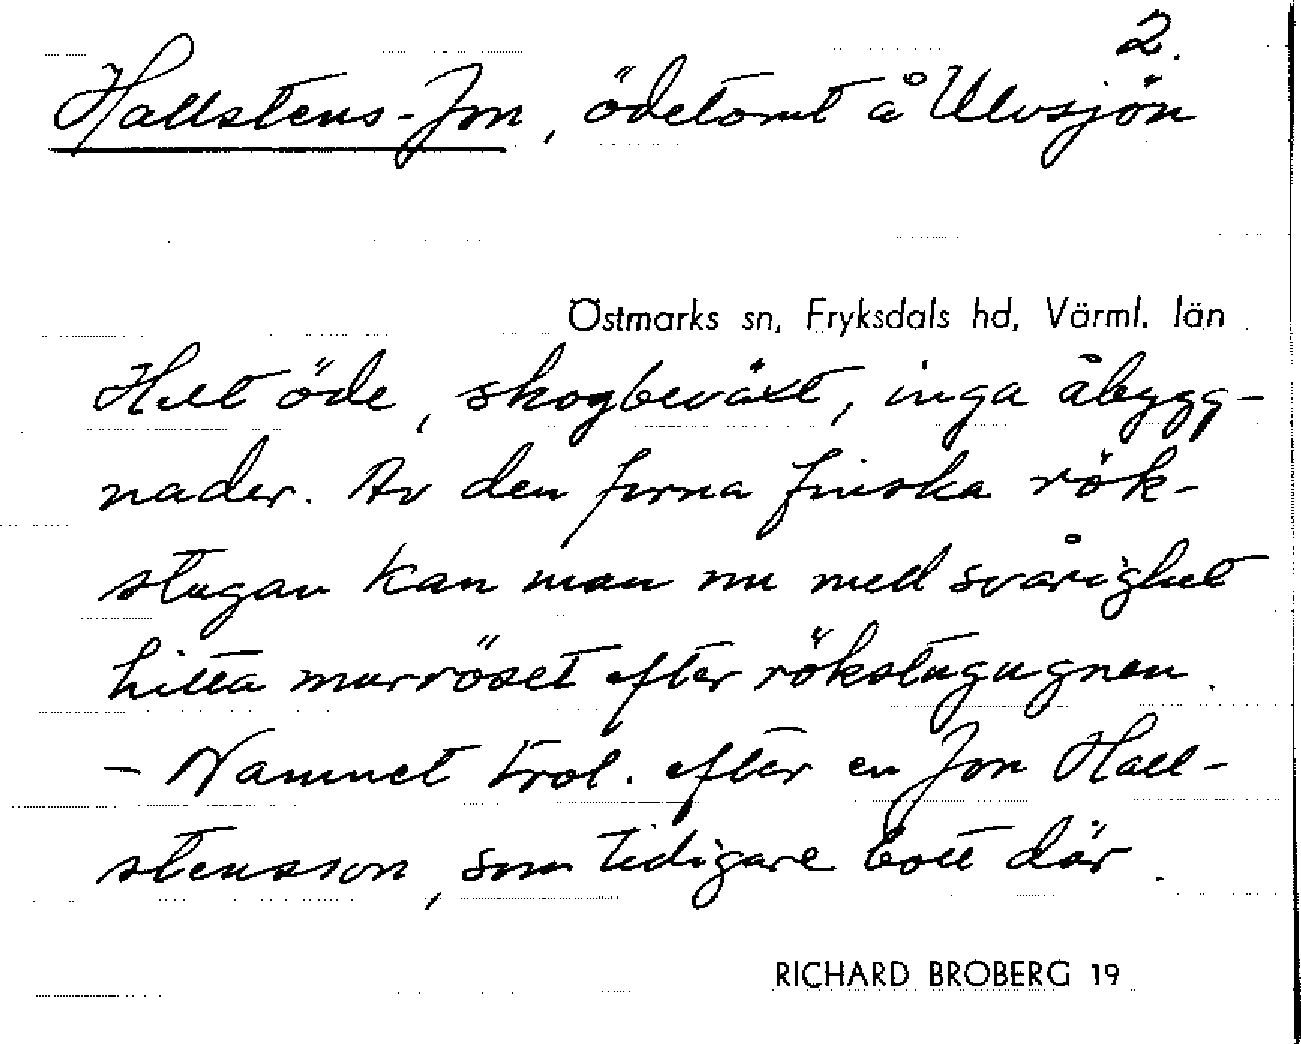 2.
Hallstens-Jon, ödetomt å Ulvsjön
Östmarks sn, Fryksdals hd, Värml. län
Helt öde, skogbeväxt, inga åbygg-
nader. Av den forna finska rök-
stugan kan man nu med svårighet
hitta murröset efter rökstugugnen.
- Namnet trol. efter en Jon Hall-
stensson, som tidigare bott där.
RICHARD BROBERG 19